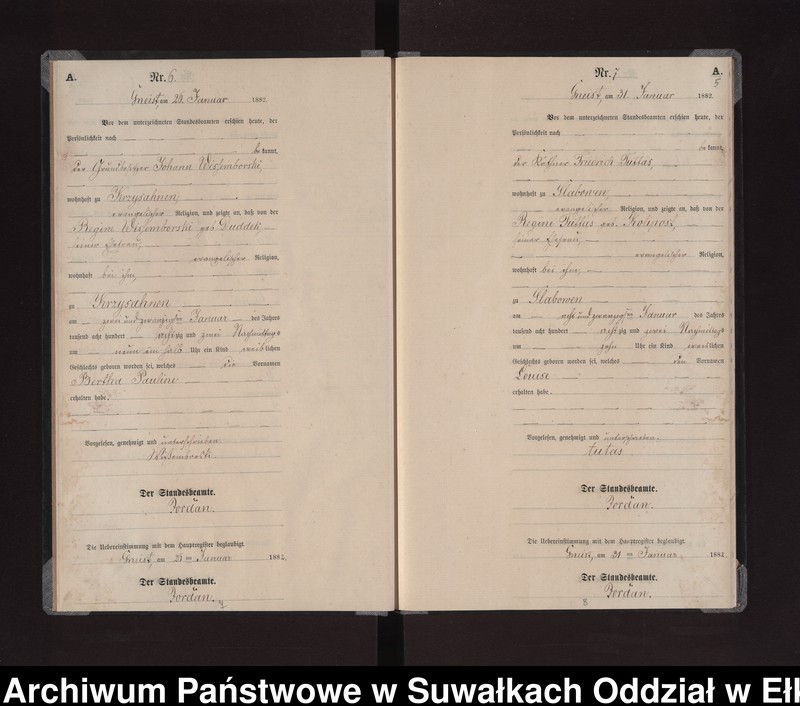 A.
Nr. 6.
Gneist, am 23. Januar 1882.
Vor dem unterzeichneten Standesbeamten erschien heute, der
Persönlichkeit nach
be kannt,
der Grundbesitzer Johann Wissemborski,
wohnhaft zu Krzysahnen,
evangelischer Religion, und zeigte an, daß von der
Regine Wissemborski geb. Duddek,
seiner Ehefrau,
evangelischer Religion,
wohnhaft bei ihm,
zu Krzysahnen
am zwei und zwanzigsten Januar des Jahres
tausend acht hundert achtzig und zwei Nachmittags
um neun ein halb Uhr ein Kind weiblichen
Geschlechts geboren worden sei, welches die Vornamen
Bertha Pauline
erhalten habe.
Vorgelesen, genehmigt und unterschrieben.
Wissemborski.
Der Standesbeamte.
Jordan.
Die Uebereinstimmung mit dem Hauptregister beglaubigt.
Gneist, am Januar 1882.
Der Standesbeamte.
Jordan.
Nr. 7
A.
5
Gneist, am 31. Januar 1882.
Vor dem unterzeichneten Standesbeamten erschien heute, der
Persönlichkeit nach
be kannt,
der Käthner Friedrich Tuttas,
wohnhaft zu Slabowen,
evangelischer Religion, und zeigte an, daß von der
Regine Tuttas geb. Kolipost,
seiner Ehefrau,
evangelischer Religion,
wohnhaft bei ihm,
zu Slabowen
am acht und zwanzigsten Januar des Jahres
tausend acht hundert achtzig und zwei Nachmittags
um zehn Uhr ein Kind weiblichen
Geschlechts geboren worden sei, welches den Vornamen
Louise
erhalten habe.
Vorgelesen, genehmigt und unterschrieben.
tutas
Der Standesbeamte.
Jordan.
Die Uebereinstimmung mit dem Hauptregister beglaubigt.
Gneist, am 31 ten Januar 1882.
Der Standesbeamte.
Jordan.
8
Archiwum Państwowe w Suwałkach Oddział w Ełk